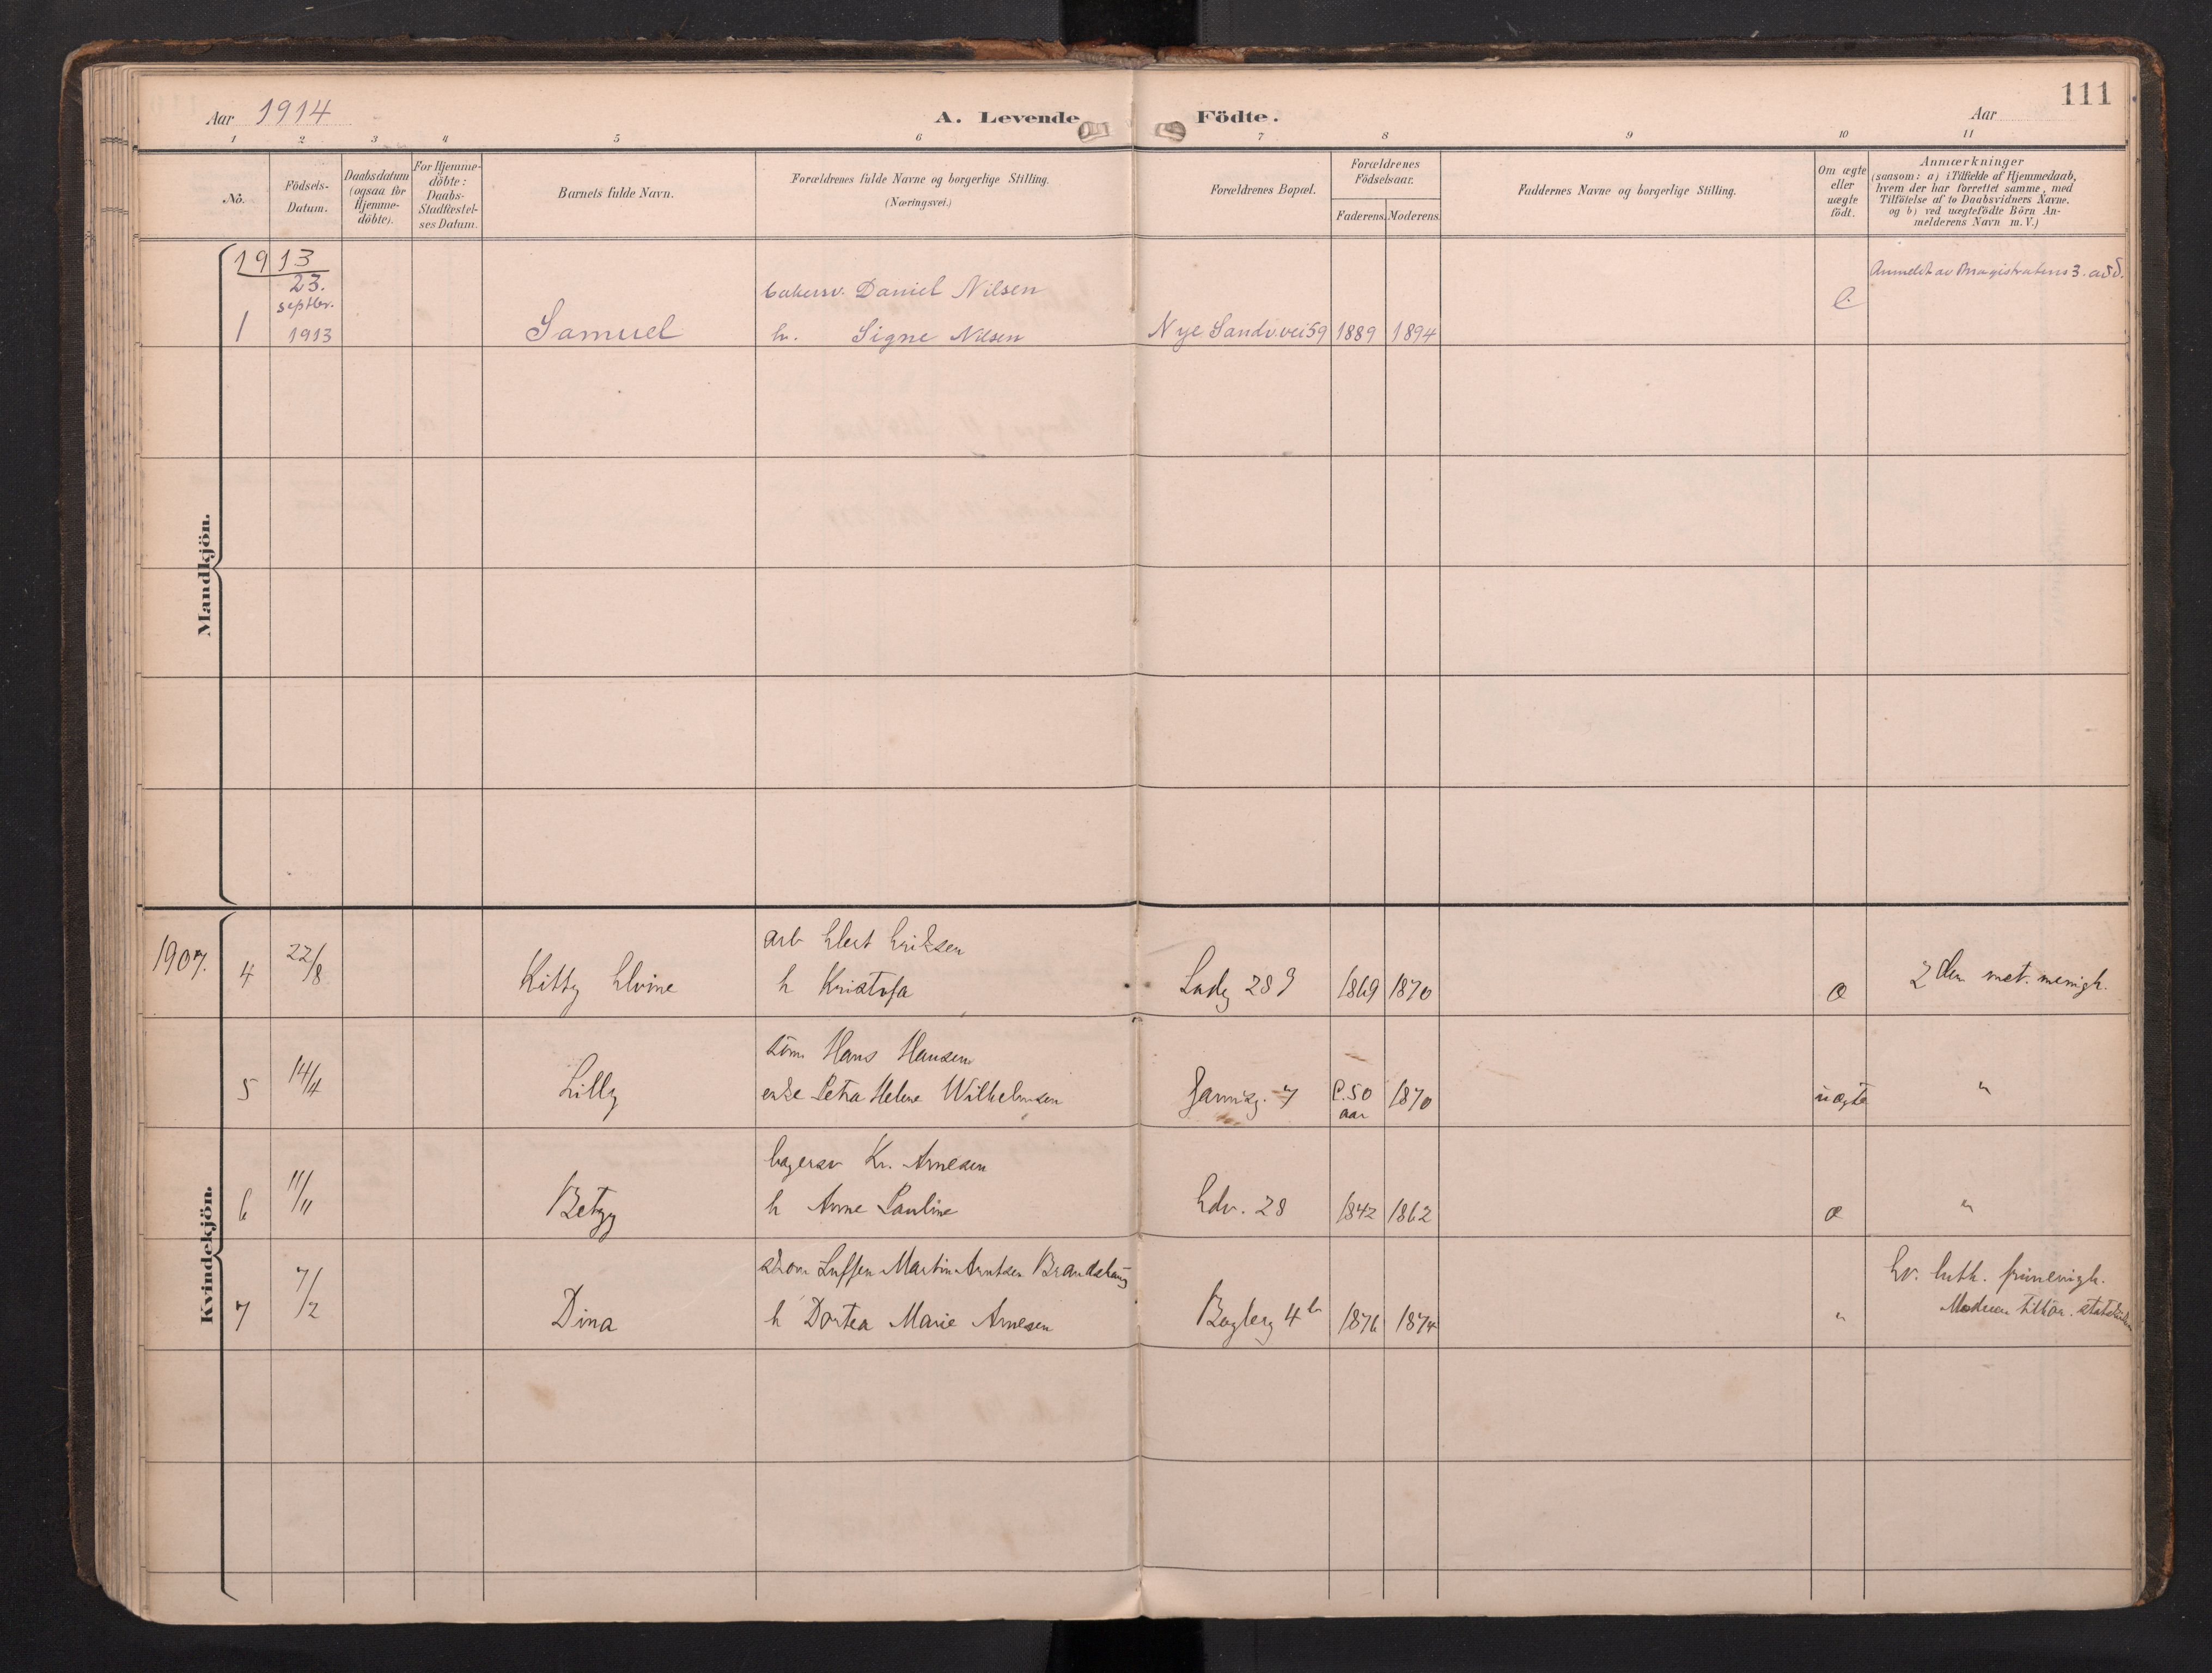 111
Aar 1914
A. Levende Födte.
Aar
1 2 3 4 5 6 7 8 9 10 11
No.
Födsels-
Datum.
Daabsdatum
(ogsaa for
Hjemme-
döbte).
For Hjemme-
döbte:
Daabs-
Stadfæstel-
ses Datum.
Barnets fulde Navn.
Forældrenes fulde Navne og borgerlige Stilling.
(Næringsvei.)
Forældrenes Bopæl.
Forældrenes
Födselsaar.
Faderens. Moderens.
Faddernes Navne og borgerlige Stilling.
Om ægte
eller
uægte
födt.
Anmærkninger
(saasom: a) i Tilfælde af Hjemmedaab,
hvem der har forrettet samme, med
Tilföielse af to Daabsvidners Navne,
og b) ved uægtefödte Börn An-
melderens Navn m. V.)
Mandkjön.
1913
23.
septbr.
1 1913
Samuel
bakersv. Daniel Nilsen
h. Signe Nilsen
Nye Sandv.vei 59 1889 1894
Anmeldt av Magistratens 3. avd.
Kvindekjön.
1907. 4 22/8
Kitty Elvine
arb Elert Eriksen
h Kristofa
Ladeg 28 1869 1870
æ
2den met. menigh.
5 14/4
Lilly
söm. Hans Hansen
enke Petra Helene Wilhelmsen
7 C. 50
aar 1870
uægte
"
6 11/11
Betzy
bagersv Kr. Arnesen
h Anne Pauline
Edv. 28 1842 1862
æ
"
7 7/2
Dina
Martin Arntsen Brandshaug
h Dortea Marie Arnesen
4b 1876 1874
"
Ev. luth. frimenigh.
Moderen tilhör. statskirken